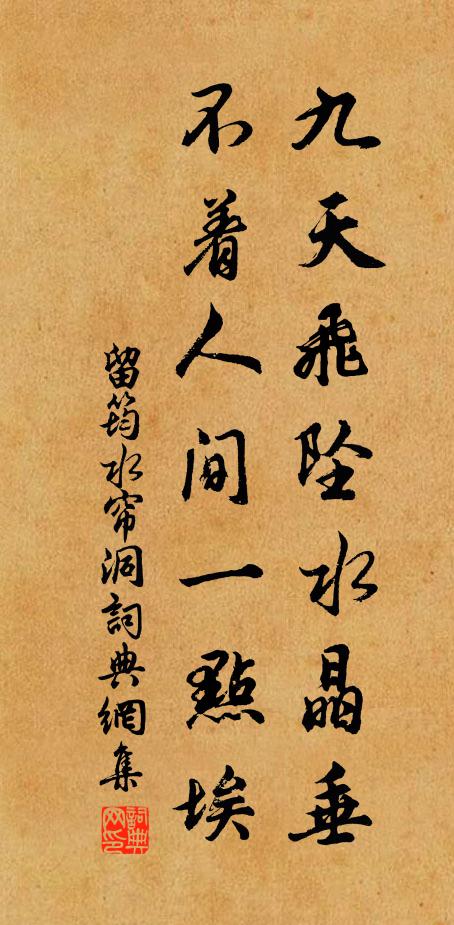 九天飛墜水晶垂
不着人間一點埃
留筠水帘洞詞典網集
詞典网印